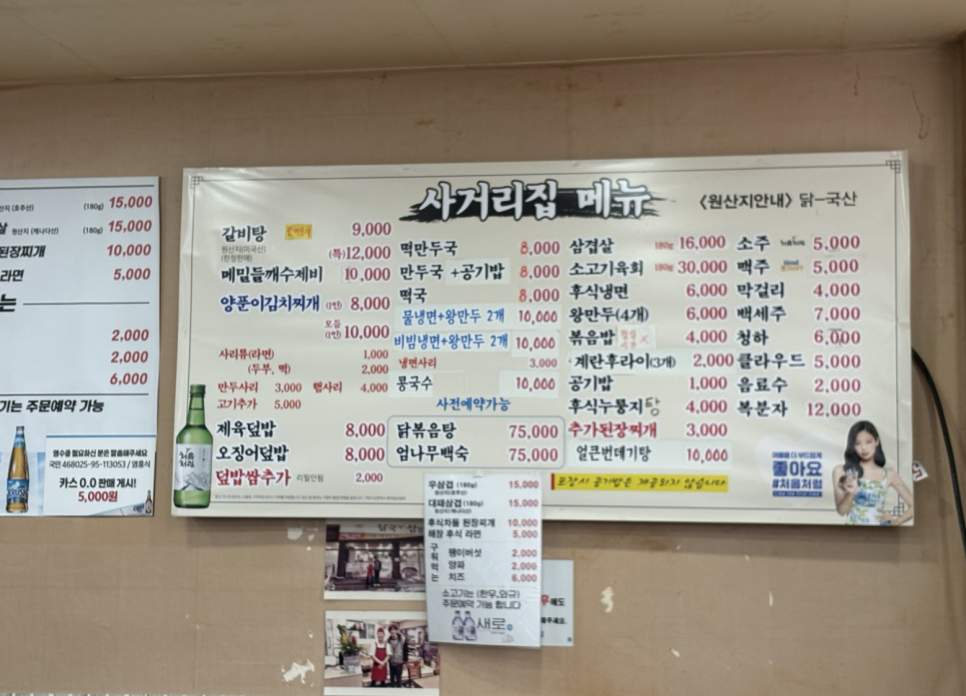 산지 (호주산) (180g) 15,000
살 원산지 (캐나다산) (180g) 15,000
된장찌개 10,000
라면 5,000
는
2,000
2,000
6,000
기는 주문예약 가능
영수증 필요하신 분은 말씀해주세요
카스 0.0 판매 게시!
5,000원
사거리집 메뉴
〈원산지안내〉 닭-국산
갈비탕 9,000
원산지(미국산) (특)12,000
(한정판매)
메밀들깨수제비 10,000
양푼이김치찌개 (1인) 8,000
모듬 (1인) 10,000
사리류(라면) 1,000
(두부, 떡) 2,000
만두사리 3,000 햄사리 4,000
고기추가 5,000
제육덮밥 8,000
오징어덮밥 8,000
덮밥쌈추가 리필안됨 2,000
떡만두국 8,000
만두국 +공기밥 8,000
떡국 8,000
물냉면+왕만두 2개 10,000
비빔냉면+왕만두 2개 10,000
냉면사리 3,000
콩국수 10,000
사전예약가능
닭볶음탕 75,000
엄나무백숙 75,000
삼겹살 180g 16,000
소고기육회 180g 30,000
후식냉면 6,000
왕만두(4개) 6,000
볶음밥 4,000
계란후라이(3개) 2,000
공기밥 1,000
후식누룽지탕 4,000
추가된장찌개 3,000
얼큰번데기탕 10,000
포장시 공기밥은 제공되지 않습니다
소주 5,000
맥주 5,000
막걸리 4,000
백세주 7,000
청하 6,000
클라우드 5,000
음료수 2,000
복분자 12,000
처음처럼
여름을 더 부드럽게
좋아요
#처음처럼
우삼겹 (180g) 15,000
원산지(호주산)
대패삼겹 (180g) 15,000
원산지(캐나다산)
후식차돌 된장찌개 10,000
해장 후식 라면 5,000
구워먹는
팽이버섯 2,000
양파 2,000
치즈 6,000
소고기는 (한우,와규)
주문예약 가능 합니다
새로